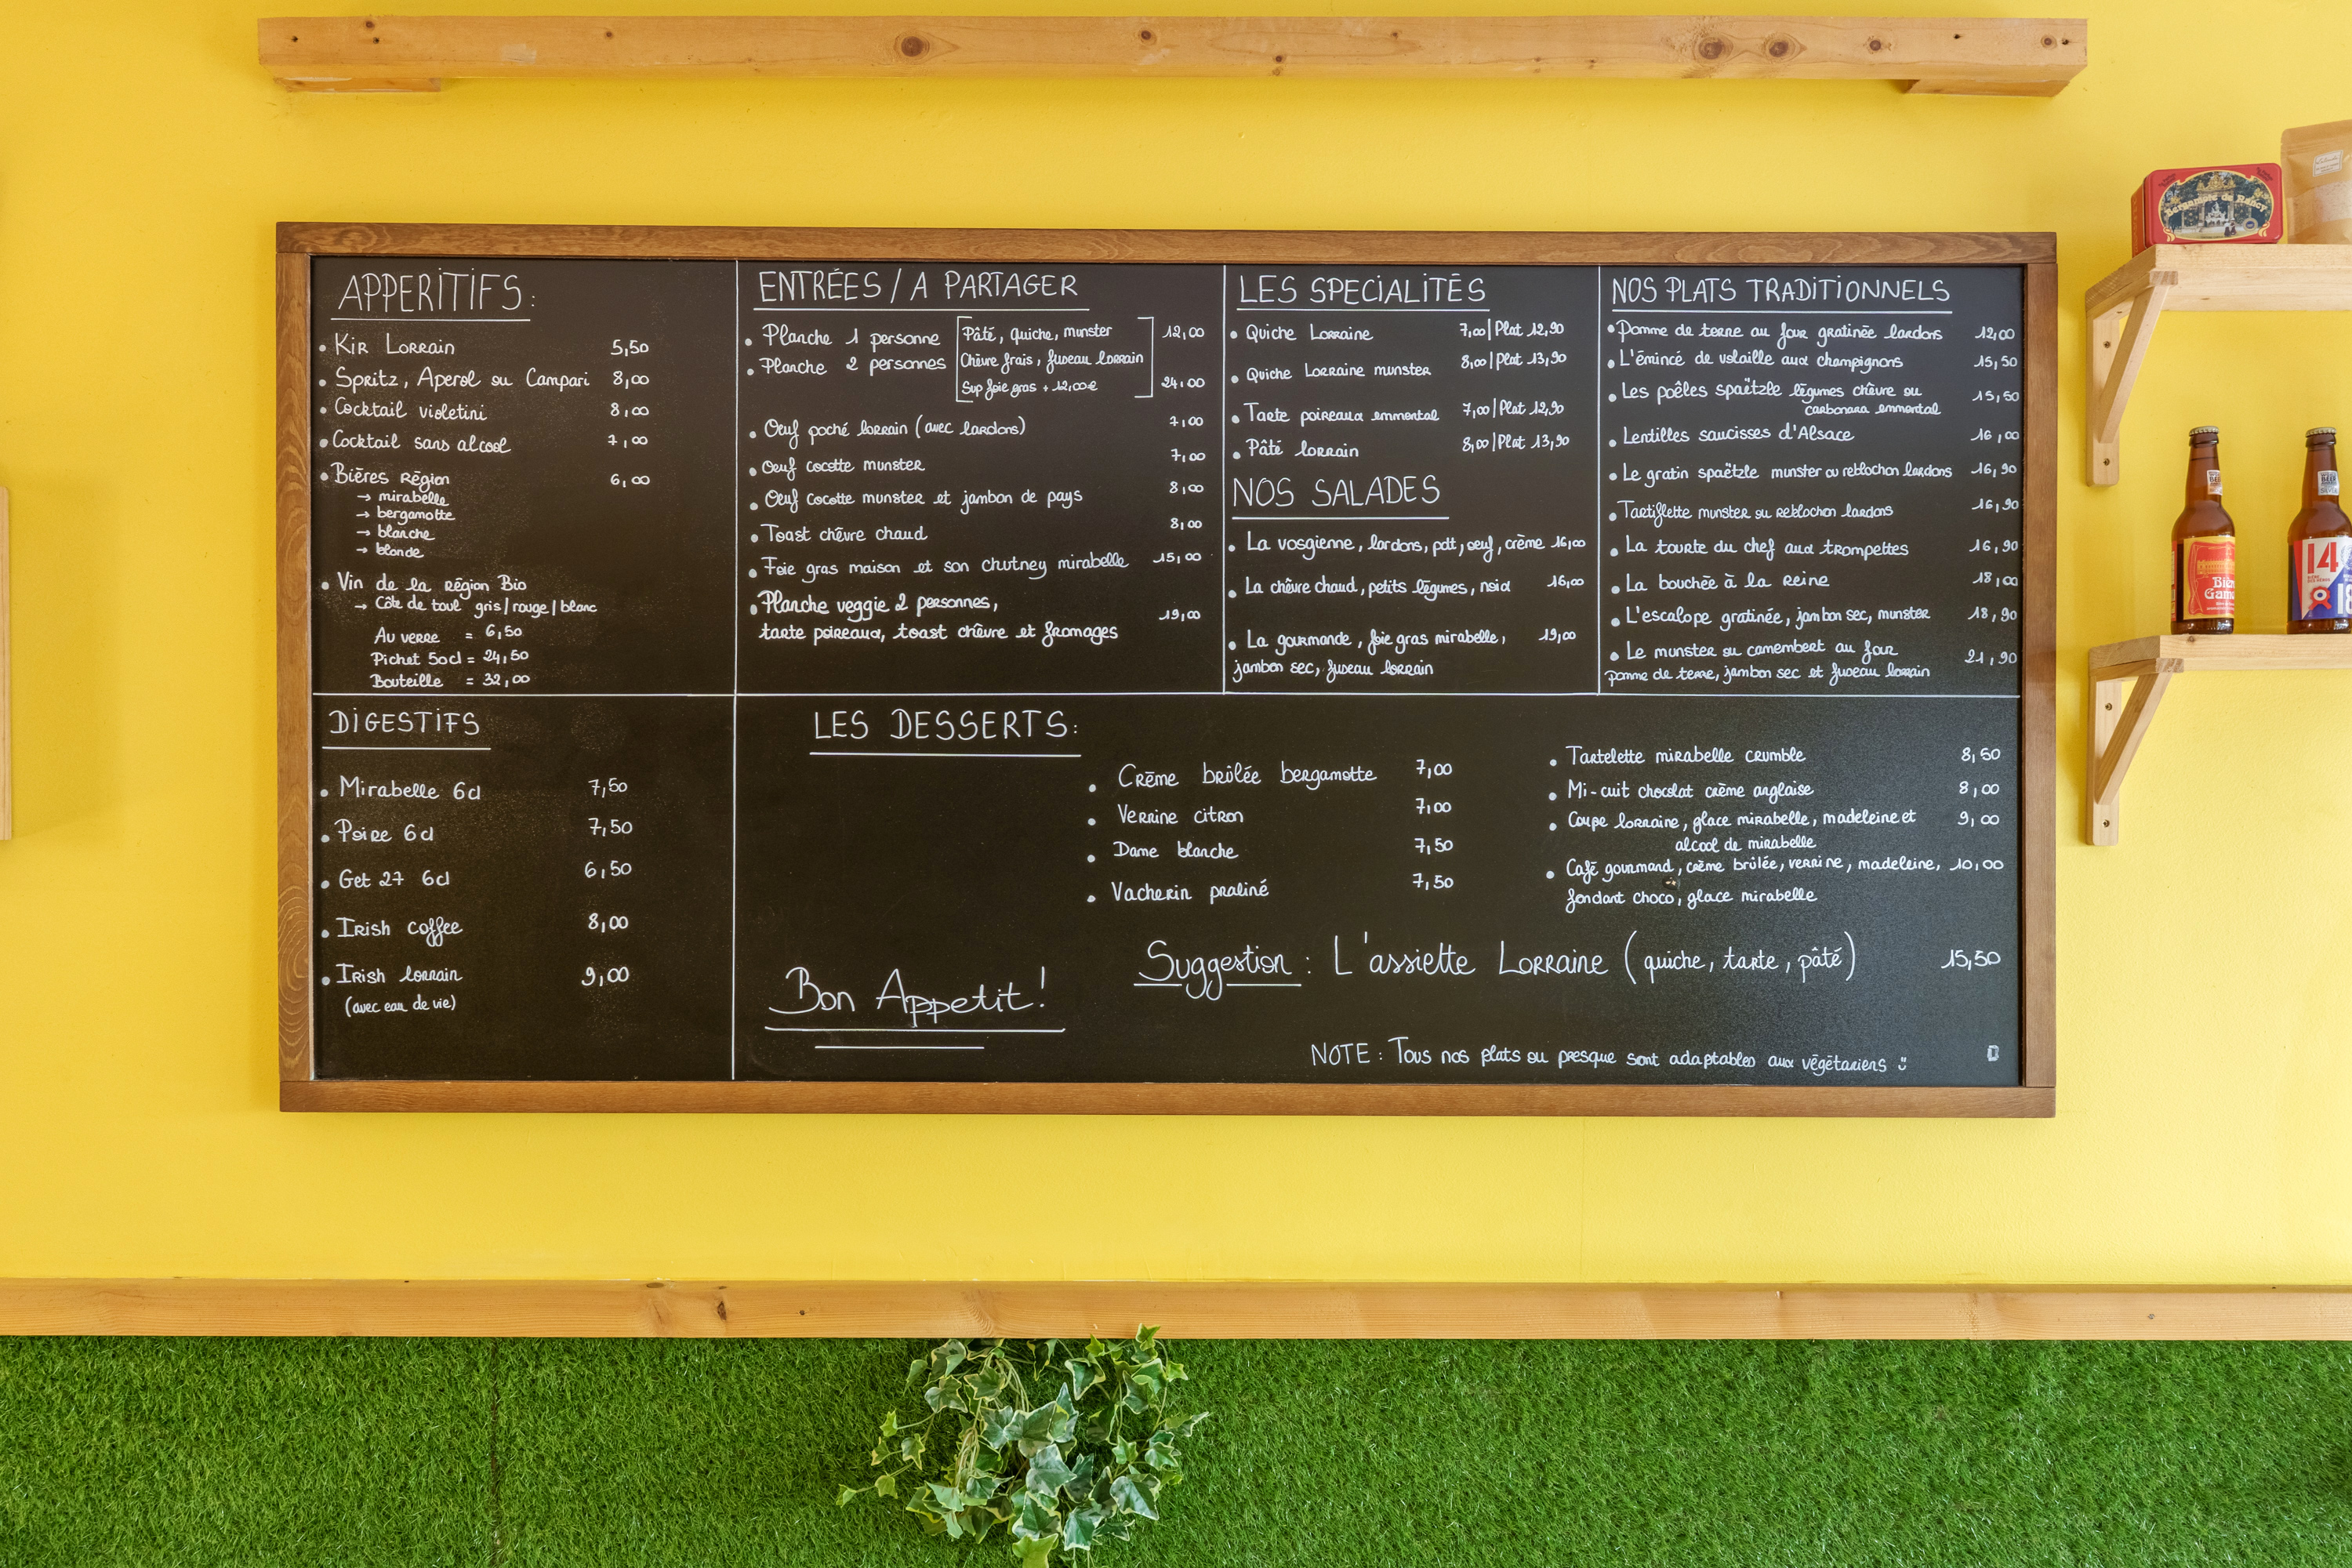 APPERITIFS:
• Kir Lorrain 5,50
• Spritz, Aperol ou Campari 8,00
• Cocktail violetini 8,00
• Cocktail sans alcool 7,00
• Bières région 6,00
→ mirabelle
→ bergamotte
→ blanche
→ blonde
• Vin de la région Bio
→ Côte de toul gris/rouge/blanc
Au verre = 6,50
Pichet 50cl = 24,50
Bouteille = 32,00
ENTRÉES / A PARTAGER
• Planche 1 personne [Pâté, quiche, munster 12,00
• Planche 2 personnes Chèvre frais, fuseau lorrain
Sup foie gras + 12,00€] 24,00
• Oeuf poché lorrain (avec lardons) 7,00
• Oeuf cocotte munster 7,00
• Oeuf cocotte munster et jambon de pays 8,00
• Toast chèvre chaud 8,00
• Foie gras maison et son chutney mirabelle 15,00
• Planche veggie 2 personnes,
tarte poireaux, toast chèvre et fromages 19,00
LES SPECIALITÉS
• Quiche Lorraine 7,00 | Plat 12,90
• Quiche Lorraine munster 8,00 | Plat 13,90
• Tarte poireaux emmental 7,00 | Plat 12,90
• Pâté lorrain 8,00 | Plat 13,90
NOS SALADES
• La vosgienne, lardons, pdt, oeuf, crème 16,00
• La chèvre chaud, petits légumes, noix 16,00
• La gourmande, foie gras mirabelle, 19,00
jambon sec, fuseau lorrain
NOS PLATS TRADITIONNELS
• Pomme de terre au four gratinée lardons 12,00
• L'émincé de volaille aux champignons 15,50
• Les poêles spaëtzle légumes chèvre ou 15,50
carbonara emmental
• Lentilles saucisses d'Alsace 16,00
• Le gratin spaëtzle munster ou reblochon lardons 16,90
• Tartiflette munster ou reblochon lardons 16,90
• La tourte du chef aux trompettes 16,90
• La bouchée à la reine 18,00
• L'escalope gratinée, jambon sec, munster 18,90
• Le munster ou camembert au four 21,90
pomme de terre, jambon sec et fuseau lorrain
DIGESTIFS
• Mirabelle 6cl 7,50
• Poire 6cl 7,50
• Get 27 6cl 6,50
• Irish coffee 8,00
• Irish lorrain 9,00
(avec eau de vie)
LES DESSERTS:
• Crème brûlée bergamotte 7,00
• Verrine citron 7,00
• Dame blanche 7,50
• Vacherin praliné 7,50
• Tartelette mirabelle crumble 8,50
• Mi-cuit chocolat crème anglaise 8,00
• Coupe lorraine, glace mirabelle, madeleine et 9,00
alcool de mirabelle
• Café gourmand, crème brûlée, verrine, madeleine, 10,00
fondant choco, glace mirabelle
Suggestion : L'assiette Lorraine (quiche, tarte, pâté) 15,50
Bon Appetit!
NOTE : Tous nos plats ou presque sont adaptables aux végétariens
Bergamote de Nancy
14
18